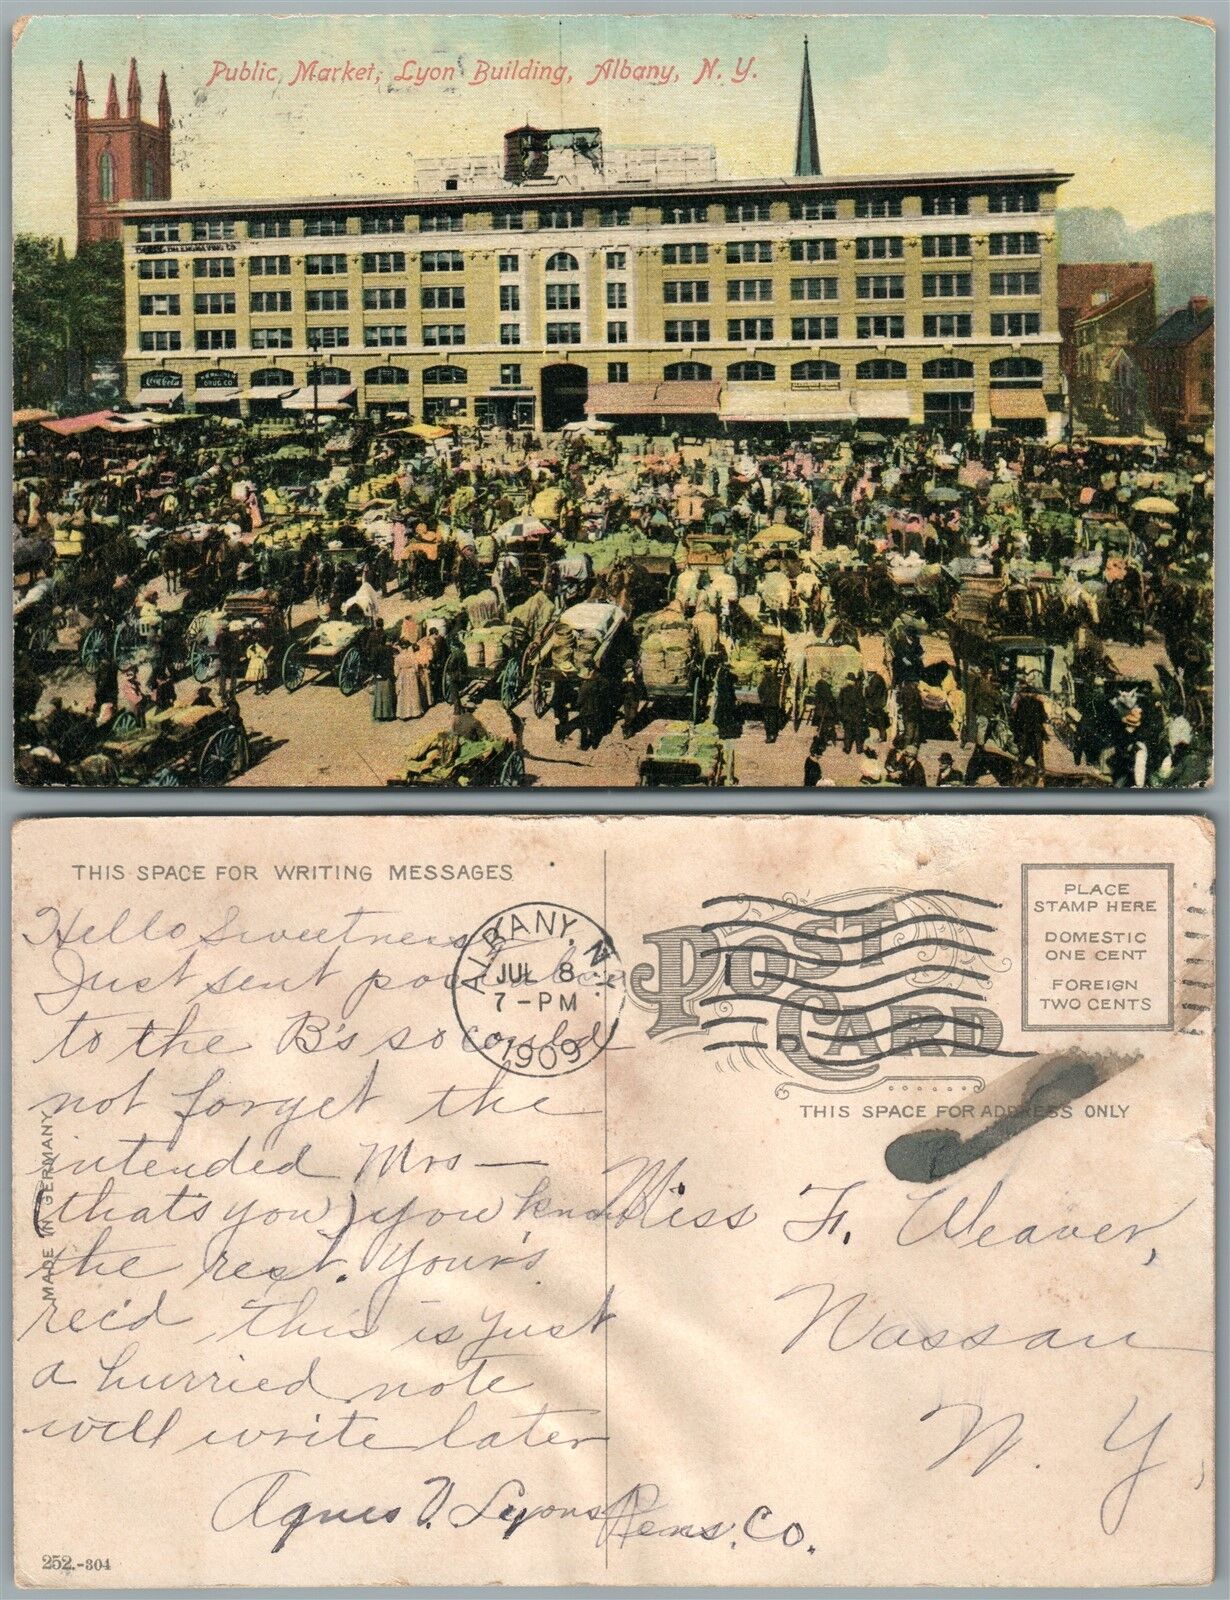 Public Market, Lyon Building, Albany, N. Y.
Coca-Cola
DRUG CO
THIS SPACE FOR WRITING MESSAGES
Hello Sweetness
Just sent
to the B's so could
not forget the
intended Mrs —
(that's you) you know
the rest. Your's
rec'd, this is just
a hurried note
will write later
Agnes V. Lyons
MADE IN GERMANY
252.-304
ALBANY, N.Y.
JUL 8
7-PM
1909
POST CARD
PLACE
STAMP HERE
DOMESTIC
ONE CENT
FOREIGN
TWO CENTS
THIS SPACE FOR ADDRESS ONLY
Miss F. Weaver,
Nassau
N. Y,
Rens. Co.